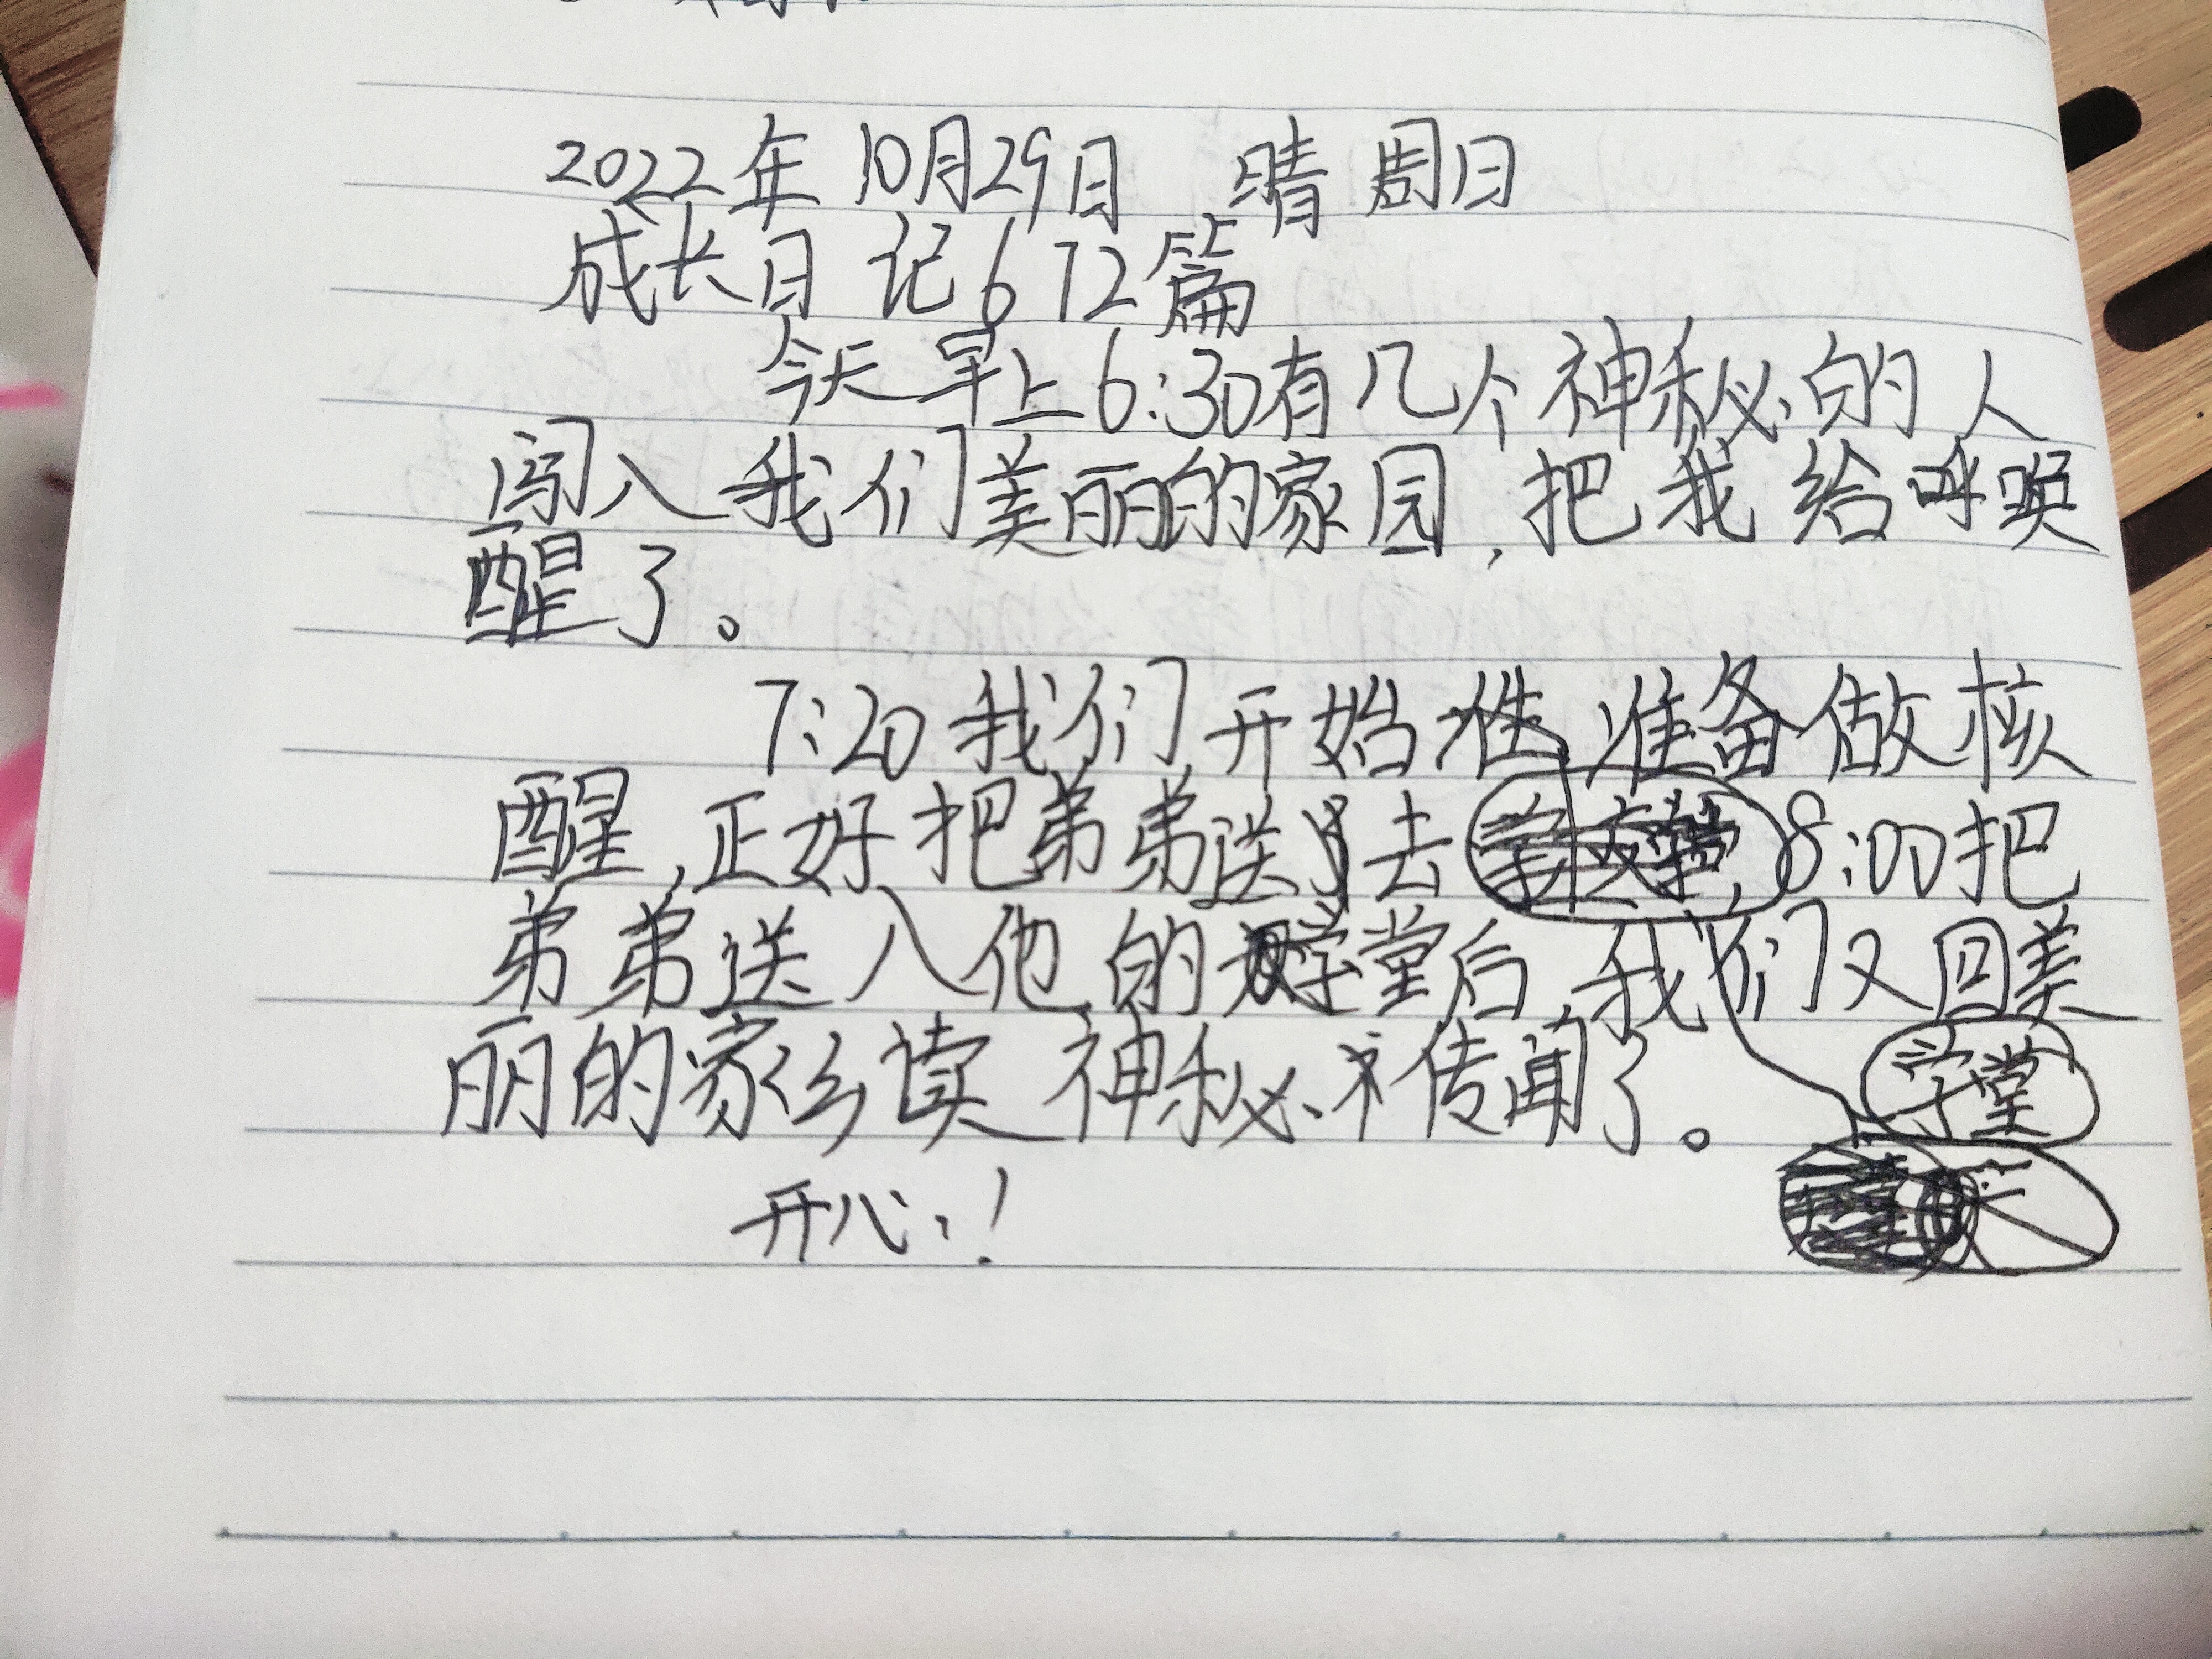 2022年10月29日 晴 周日
成长日记672篇
今天早上6:30有几个神秘的人
闯入我们美丽的家园,把我给呼唤
醒了。
7:20我们开始准备做核
醒,正好把弟弟送去 8:00把
弟弟送入他的学堂后,我们又回美
丽的家去读神秘传闻了。
学堂
开心!